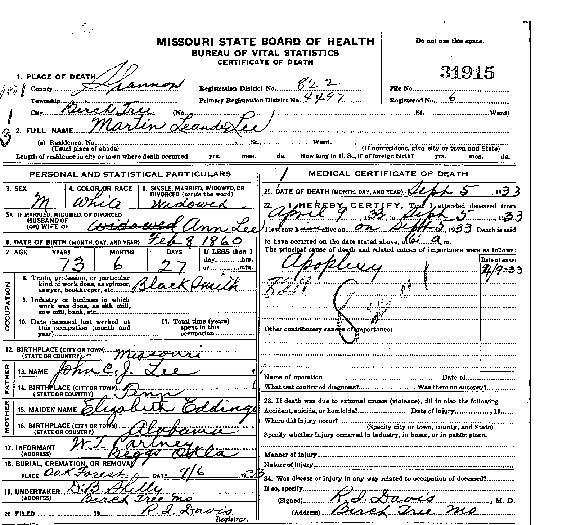 MISSOURI STATE BOARD OF HEALTH
BUREAU OF VITAL STATISTICS
CERTIFICATE OF DEATH
Do not use this space.
31915
1. PLACE OF DEATH
County Shannon
Registration District No. 822
File No.
Township
Primary Registration District No. 4497
Registered No. 6
City Birch Tree (No.
St. Ward)
2. FULL NAME Martin Leander Lee
(a) Residence. No. St. Ward.
(Usual place of abode) (If nonresident, give city or town and State)
Length of residence in city or town where death occurred yrs. mos. ds. How long in U. S., if of foreign birth? yrs. mos. ds.
PERSONAL AND STATISTICAL PARTICULARS
3. SEX M
4. COLOR OR RACE White
5. SINGLE, MARRIED, WIDOWED, OR DIVORCED (write the word) Widowed
5A. IF MARRIED, WIDOWED, OR DIVORCED
HUSBAND OF
(OR) WIFE OF Ann Lee
6. DATE OF BIRTH (MONTH, DAY, AND YEAR) Feb 8 1860
7. AGE YEARS MONTHS DAYS If LESS than 1
day, hrs.
or min.
73 6 27
OCCUPATION
8. Trade, profession, or particular
kind of work done, as spinner,
sawyer, bookkeeper, etc. Black Smith
9. Industry or business in which
work was done, as silk mill,
saw mill, bank, etc.
10. Date deceased last worked at
this occupation (month and
year)
11. Total time (years)
spent in this
occupation
12. BIRTHPLACE (CITY OR TOWN)
(STATE OR COUNTRY) Missouri
FATHER
13. NAME John C. J. Lee
14. BIRTHPLACE (CITY OR TOWN)
(STATE OR COUNTRY) Tenn
MOTHER
15. MAIDEN NAME Elizabeth Eddings
16. BIRTHPLACE (CITY OR TOWN)
(STATE OR COUNTRY) Alabama
17. INFORMANT W. T. Partney
(ADDRESS) Beggs Okla
18. BURIAL, CREMATION, OR REMOVAL
PLACE Oak Forest DATE 9/6 33
19. UNDERTAKER
(ADDRESS) Birch Tree Mo
20. FILED 19 R. I. Davis
Registrar.
MEDICAL CERTIFICATE OF DEATH
21. DATE OF DEATH (MONTH, DAY, AND YEAR) Sept 5 1933
22. I HEREBY CERTIFY, That I attended deceased from
April 9 33 Sept 5 1933
on Sept 5 1933 Death is said
to have occurred on the date stated above, at 6 a m.
The principal cause of death and related causes of importance were as follows:
Date of onset
Apoplexy
82a
Other contributory causes of importance:
Name of operation Date of
What test confirmed diagnosis? Was there an autopsy?
23. If death was due to external causes (violence), fill in also the following
Accident, suicide, or homicide? Date of injury , 19
Where did injury occur?
(Specify city or town, county, and State)
Specify whether injury occurred in industry, in home, or in public place.
Manner of injury
Nature of injury
24. Was disease or injury in any way related to occupation of deceased?
If so, specify
(Signed) R. I. Davis , M. D.
(Address) Birch Tree Mo